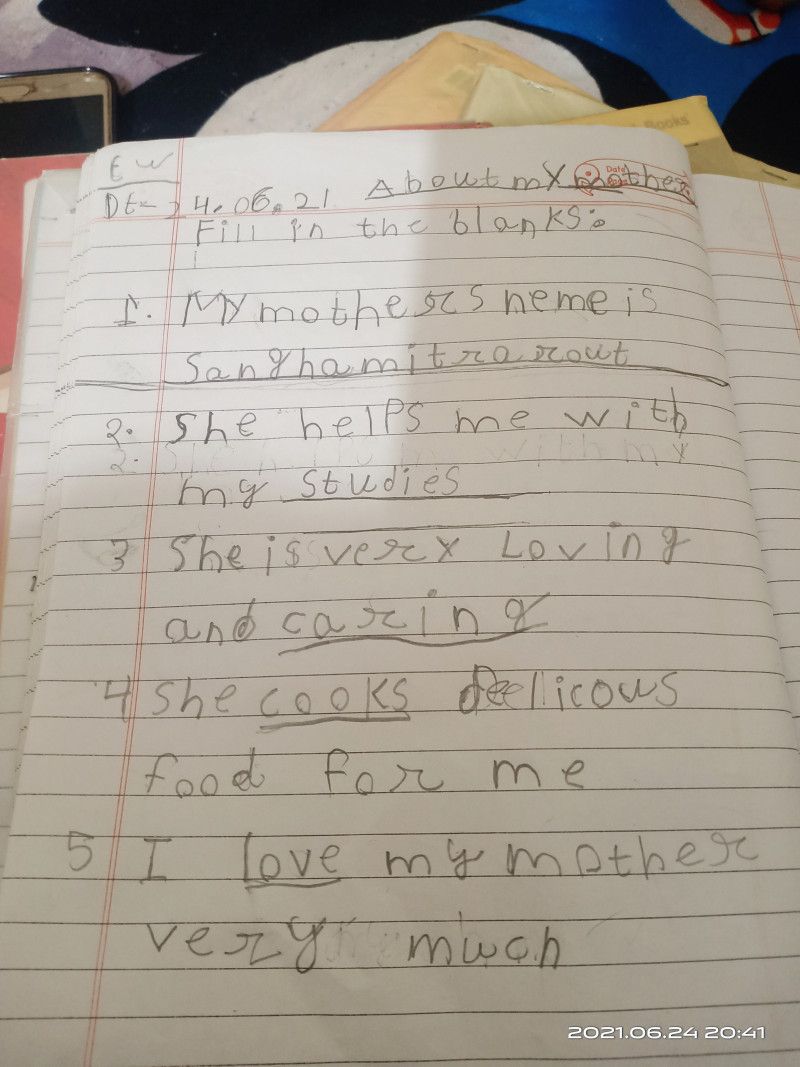 EW
Dt- 24.06.21 About my mother
Date
Fill in the blanks:
1. My mothers neme is
Sanghamitra rout
2. She helps me with
my studies
3 She is very Loving
and caring
4 She cooks delicous
food for me
5 I love my mother
very much
Books
2021.06.24 20:41